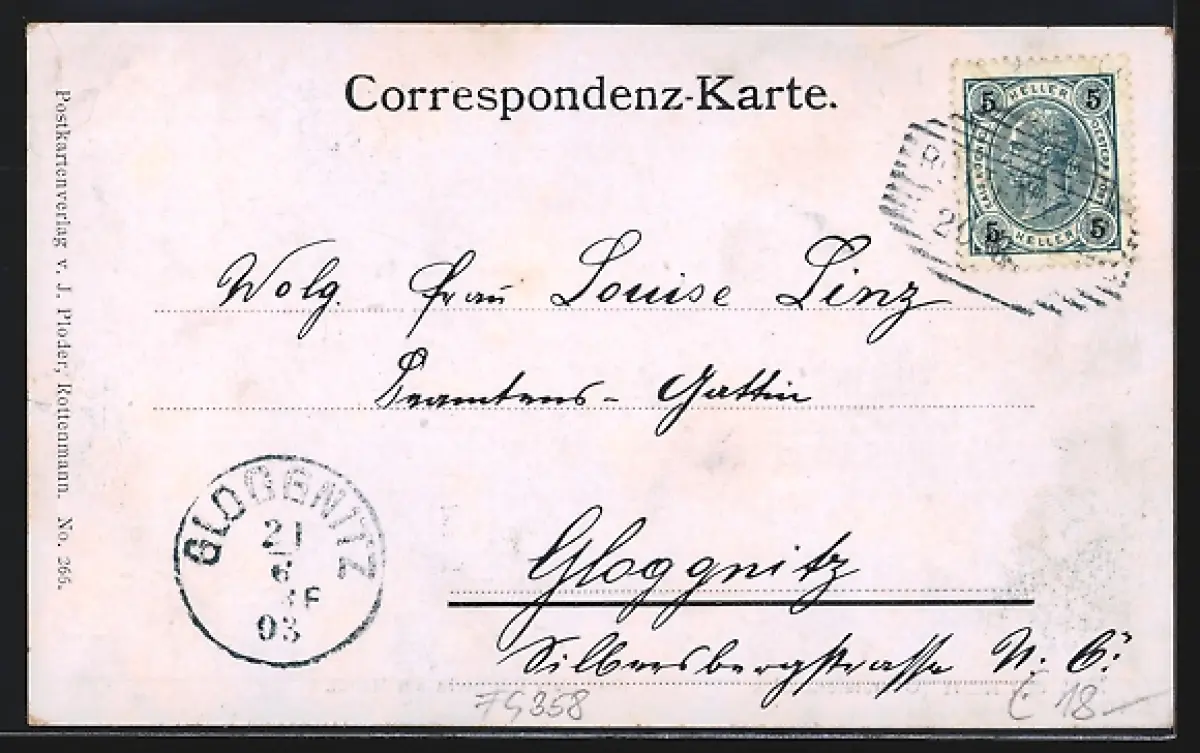 Correspondenz-Karte.
5 HELLER 5
5 HELLER 5
20
Wolg. Frau Louise Linz
Beamtens-Gattin
Gloggnitz
Silbersbergstrasse N. Ö.
GLOGGNITZ
21
6
03
FG358
18-
Postkartenverlag v. J. Ploder, Rottenmann. No. 266.